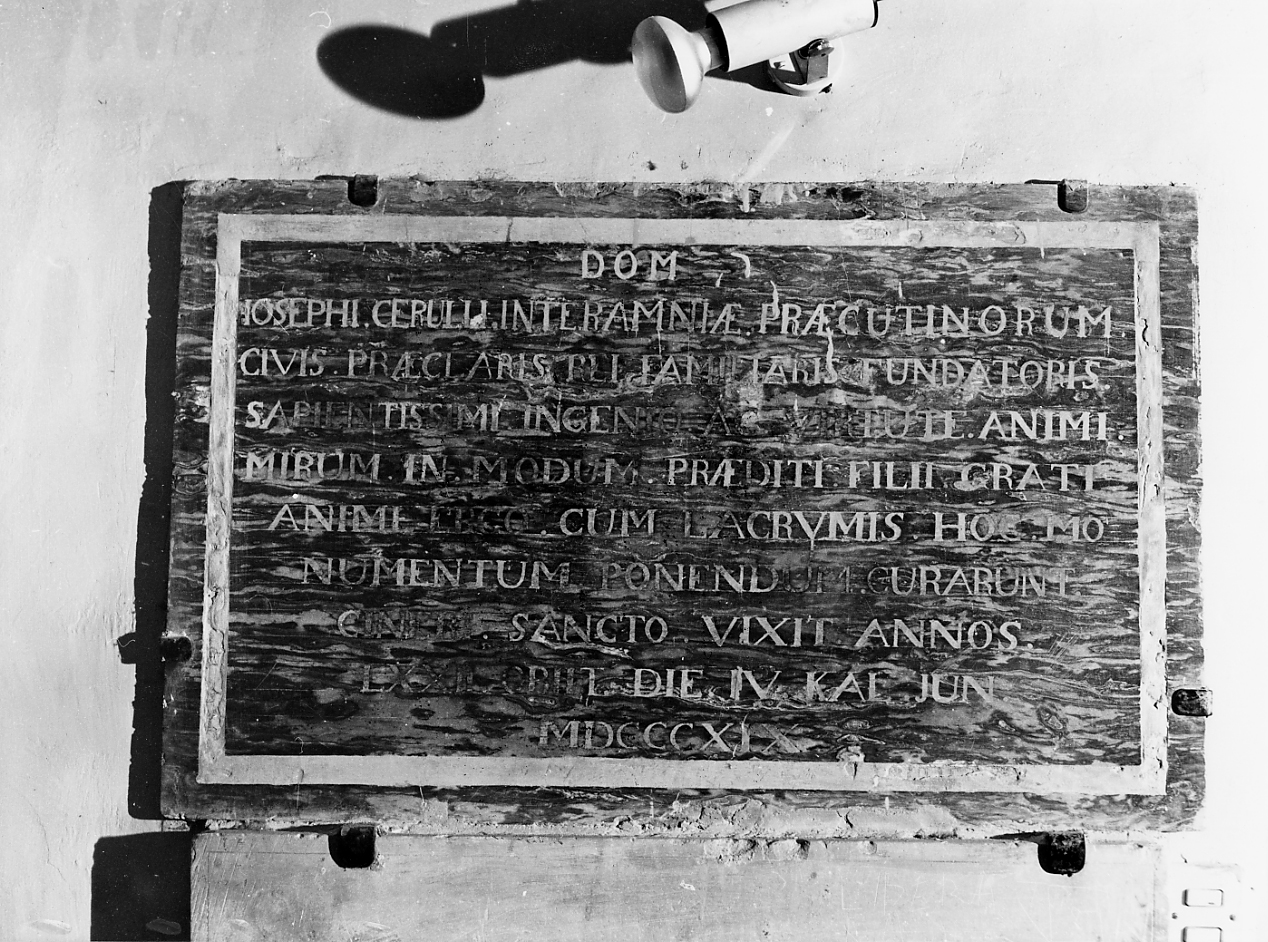 DOM
IOSEPHI. CERULLI. INTERAMNIÆ. PRÆCUTINORUM
CIVIS. PRÆCLARIS FAMILIARIS FUNDATORIS.
SAPIENTISSIMI. INGENIO. AC. VIRTUTE. ANIMI.
MIRUM. IN. MODUM. PRÆDITI FILII GRATI
ANIMI ERGO. CUM LACRYMIS. HOC. MO
NUMENTUM PONENDUM. CURARUNT.
CINERI. SANCTO. VIXIT ANNOS.
OBIIT. DIE. IV. KAL JUN